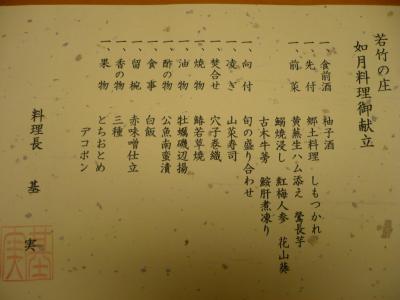 若竹の庄
如月料理御献立
一、食前酒　柚子酒
一、先付　郷土料理　しもつかれ
一、前菜　黄蕪生ハム添え　鶯長芋
鰯焼浸し　紅梅人参　花山葵
古木牛蒡　鮟肝煮凍り
一、向付　旬の盛り合わせ
一、凌ぎ　山菜寿司
一、焚合せ　穴子巻繊
一、焼物　鰆若草焼
一、油物　牡蠣磯辺揚
一、酢の物　公魚南蛮漬
一、食事　白飯
一、留椀　赤味噌仕立
一、香の物　三種
一、果物　とちおとめ
デコポン
料理長　基　実